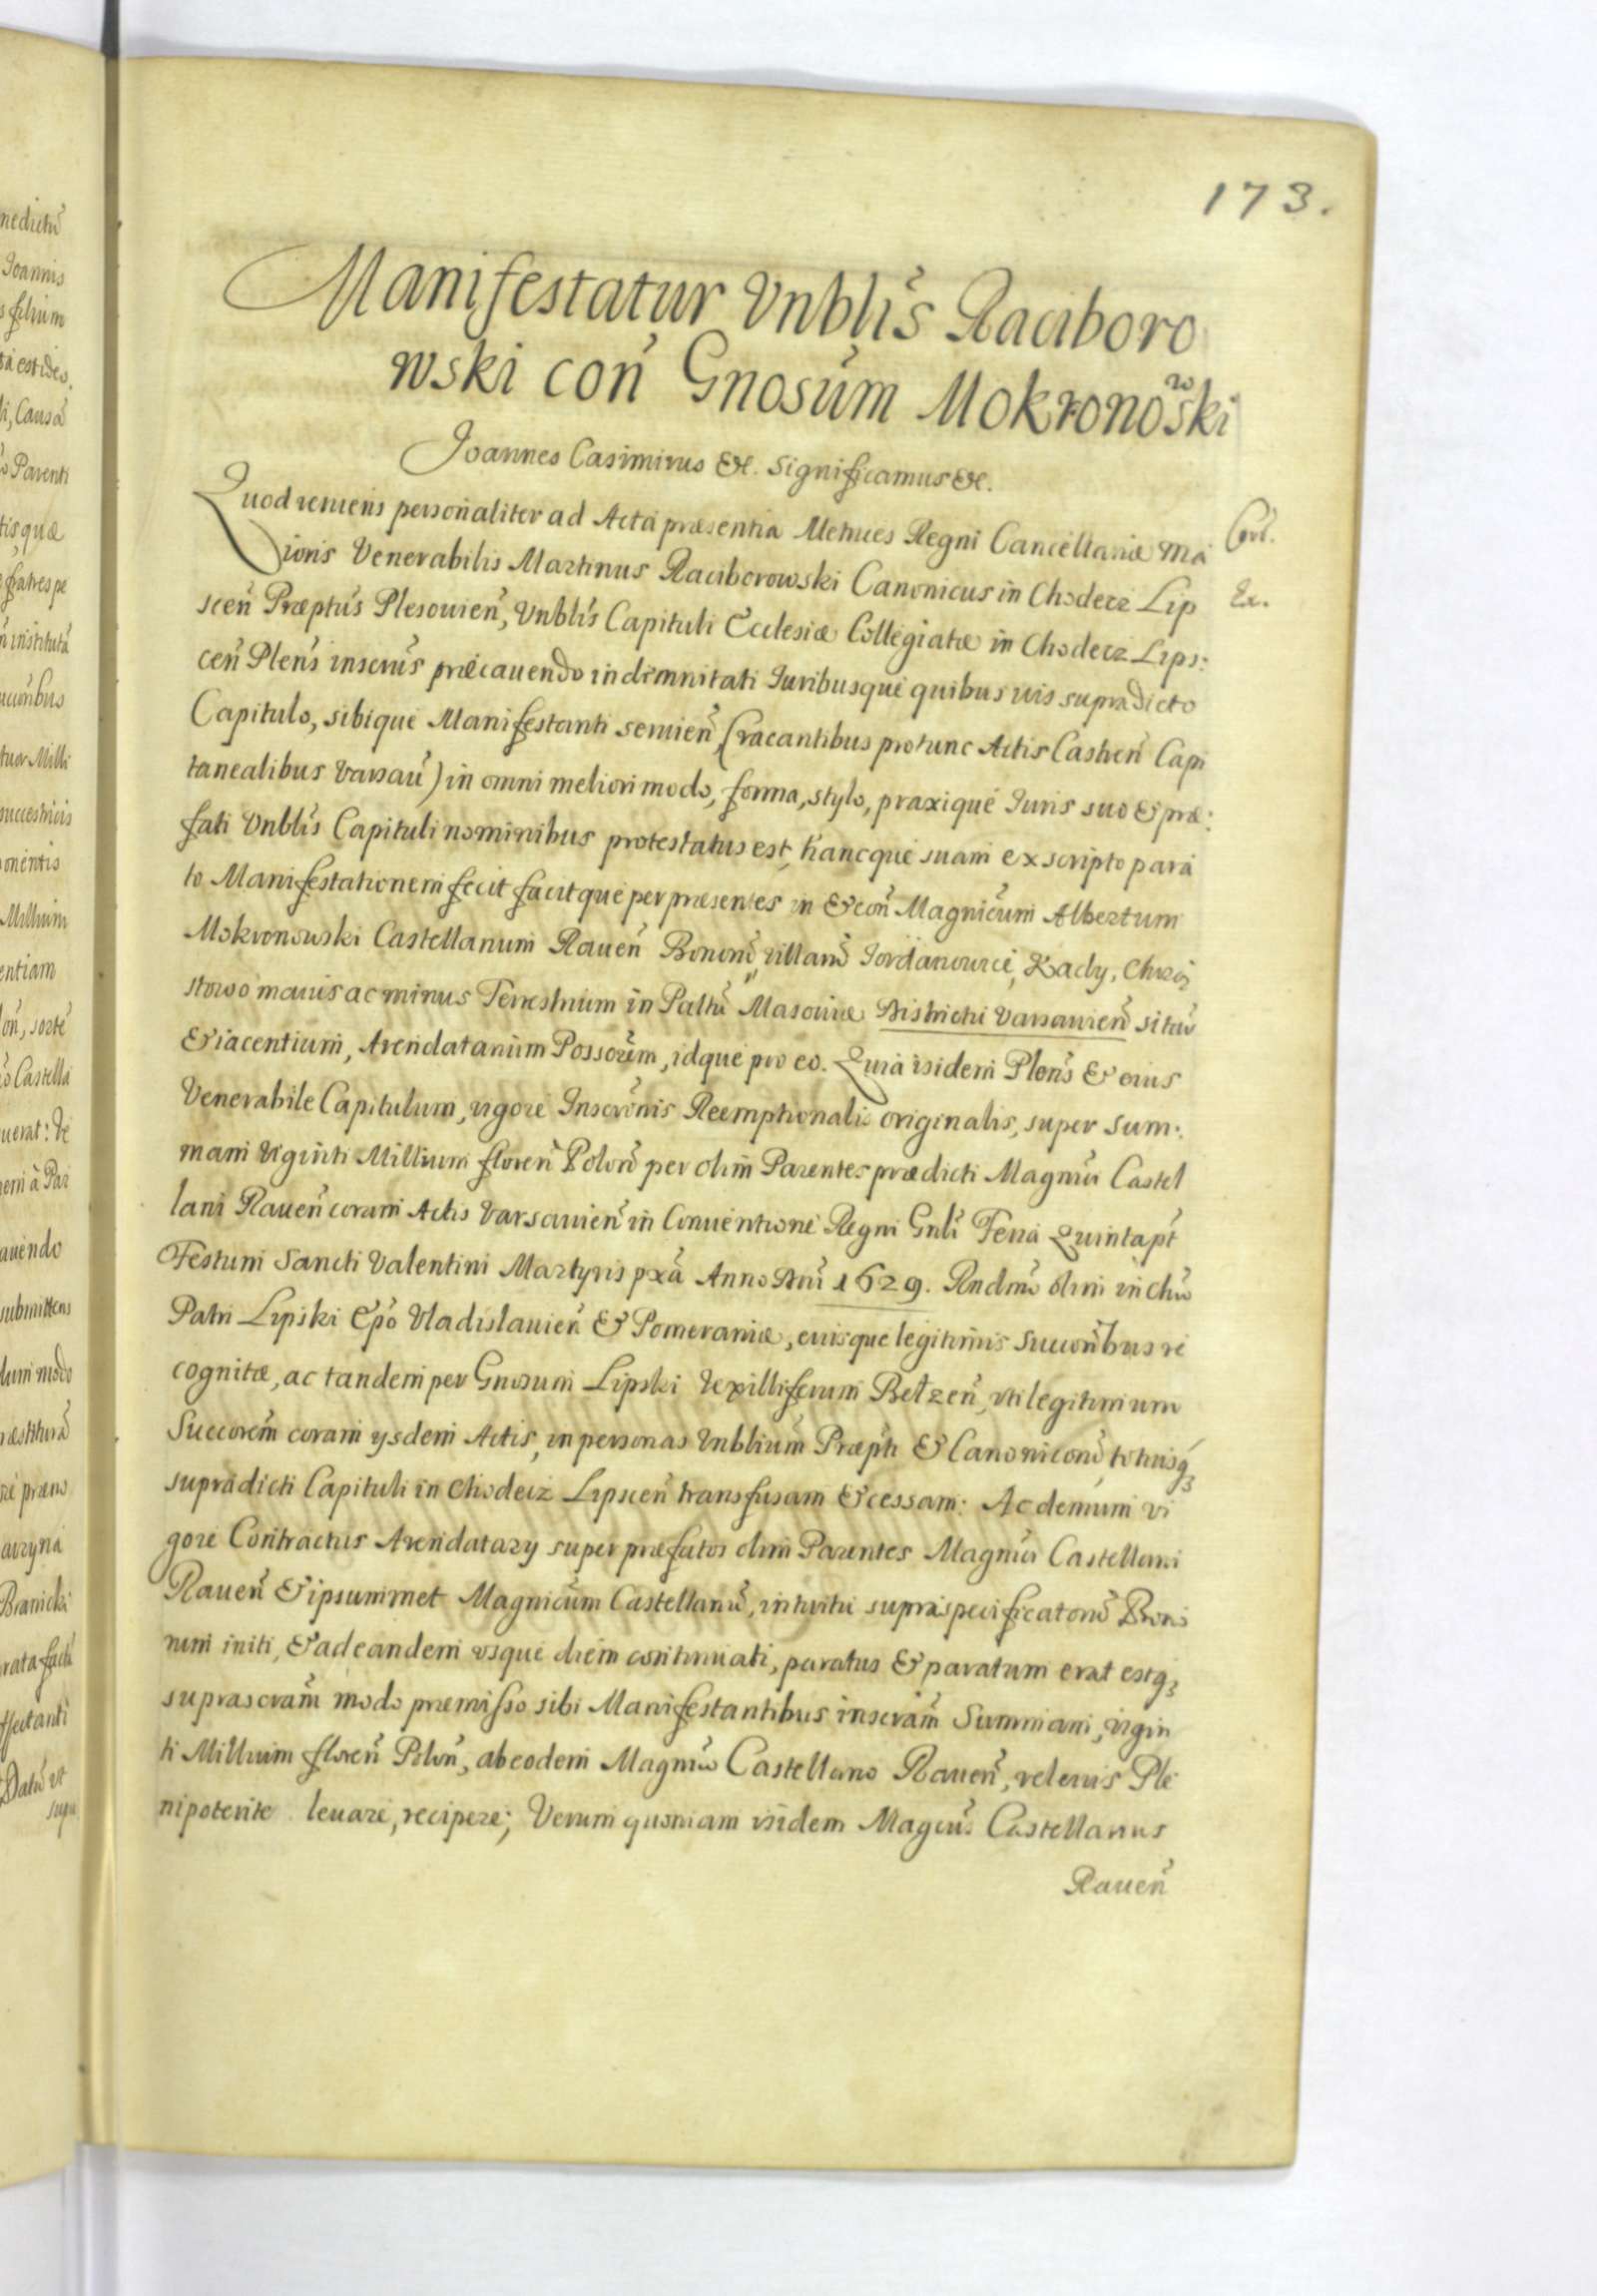 173.
Manifestatur Vnblis Raciboro
wski con Gnosum Mokronowski
Joannes Casimirus &c. Significamus &c.
Quod veniens personaliter ad Acta præsentia Metrices Regni Cancellariæ Ma
Cor.
ioris Venerabilis Martinus Raciborowski Canonicus in Chodecz Lip
Ex.
scen Præptus Plesouien, Vnblis Capituli Ecclesiæ Collegiatæ in Choderz Lips:
cen Plens inscrus præcauendo indemnitati Iuribusque quibusuis supradicto
Capitulo, sibique Manifestanti seruien (vacantibus protunc Actis Castren Capi
tanealibus Varsau) in omni meliori modo, forma, stylo, praxique Iuris suo & præ:
fati Vnblis Capituli nominibus protestatus est, hancque suam ex scripto para
to Manifestationem fecit facitque per præsentes in & con Magnicum Albertum
Mokronowski Castellanum Rauen Bonorum, villarum Jordanowice, Kady,
stowo maius ac minus Terrestrium in Paltu Masouiæ Districtu Varsauien sitar
& iacentium, Arendatarium Possorem, idque pro eo. Quia isidem Plens & eius
Venerabile Capitulum, vigore Inscronis Reemptionalis originalis, super sum:
mam viginti Millium floren Polon per olim Parentes prædicti Magnici Castel
lani Rauen coram Actis Varsauien in Conuentione Regni Gnli Feria Quinta pt
Festum Sancti Valentini Martyris pxa Anno Dni 1629. Rndmo olim in Chro
Patri Lipski Epo Vladislauien & Pomeraniæ, eiusque legitimis Succoribus re
cognitæ, ac tandem per Gnosum Lipski Vexilliferum Betzen, vti legitimum
Succorem coram ysdem Actis, in personas Vnblium Præpti & Canonicoru, totiusq3
supradicti Capituli in Chodecz Lipscen transfusam & cessam: Ac demum vi
gore Contractus Arendatary super præfatos olim Parentes Magnici Castellani
Rauen & ipsummet Magnicum Castellanu, intuitu supraspecificatoru Bono
rum initi, & ad eandem vsque diem continuati, paratus & paratum erat estq3
suprascram modo præmisso sibi Manifestantibus inscram Summam, vigin
ti Millium floren Polon, ab eodem Magnico Castellano Rauen, vel eius Ple
nipotente leuare, recipere; Verum quoniam isidem Magcus Castellanus
Rauen